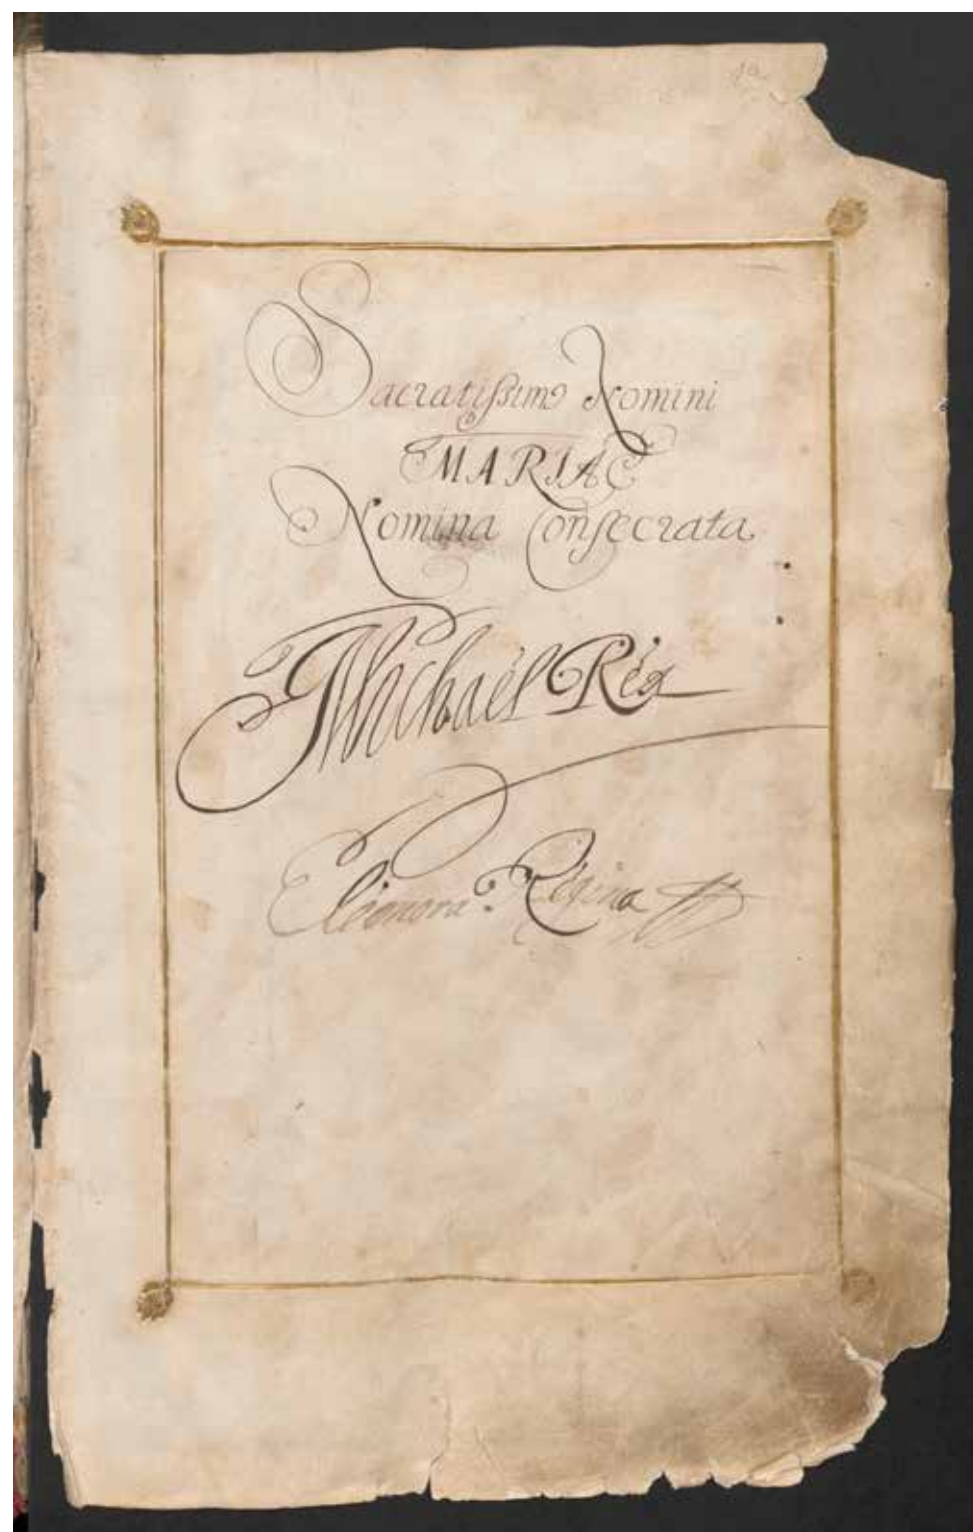 Sacratissimo Nomini
MARIAE
Nomina Consecrata
Michaël Rex
Eleonora Regina